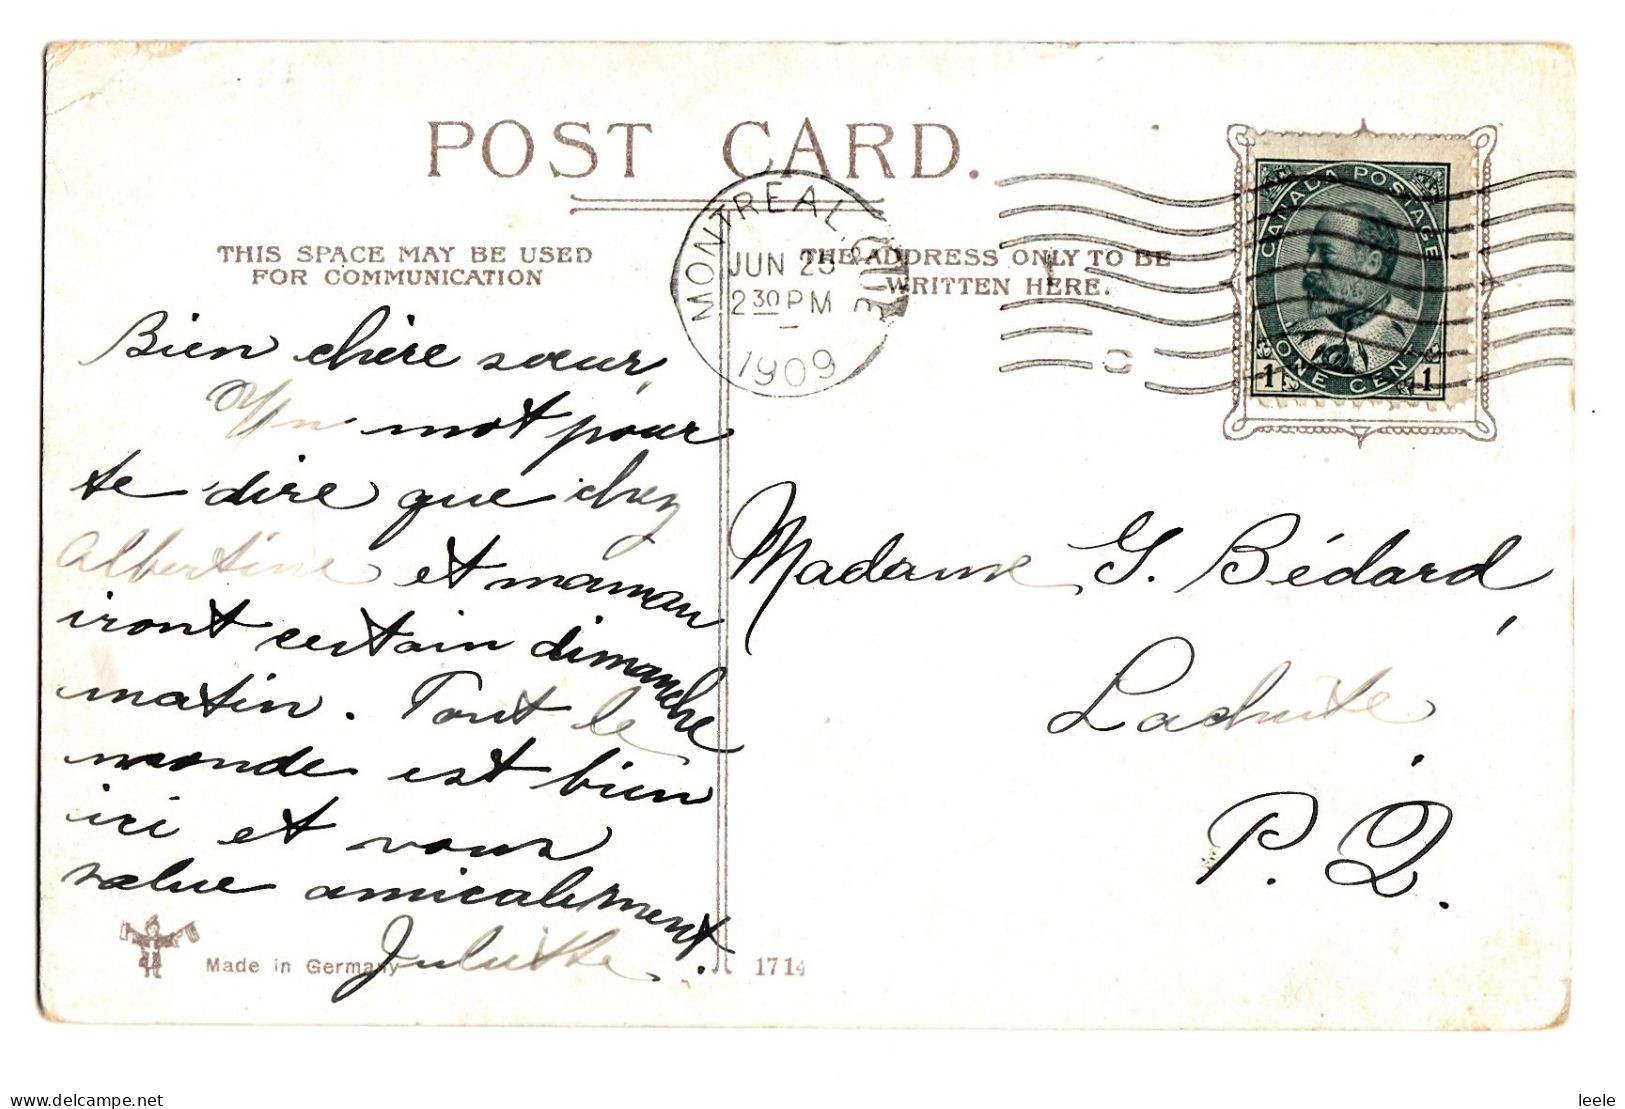 POST CARD.
THIS SPACE MAY BE USED
FOR COMMUNICATION
THE ADDRESS ONLY TO BE
WRITTEN HERE.
MONTREAL, QUE
JUN 25
2 30 PM
1909
CANADA POSTAGE
ONE CENT
1 1
Bien chère sœur,
Un mot pour
te dire que chez
Albertine et maman
iront certain dimanche
matin. Tout le
monde est bien
ici et vous
salue amicalement.
Juliette
Madame G. Bédard,
Lachute,
P. Q.
Made in Germany
1714
delcampe.net
leele